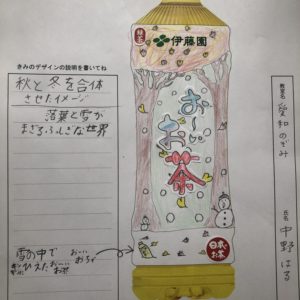 きみのデザインの説明を書いてね
秋と冬を合体
させたイメージ
落葉と雪が
まざるふしぎな世界
雪の中で
ひえた
おーいお茶
伊藤園
お〜い
お茶
日本の
お茶
教室名
愛知のぞみ
氏名
中野 はる